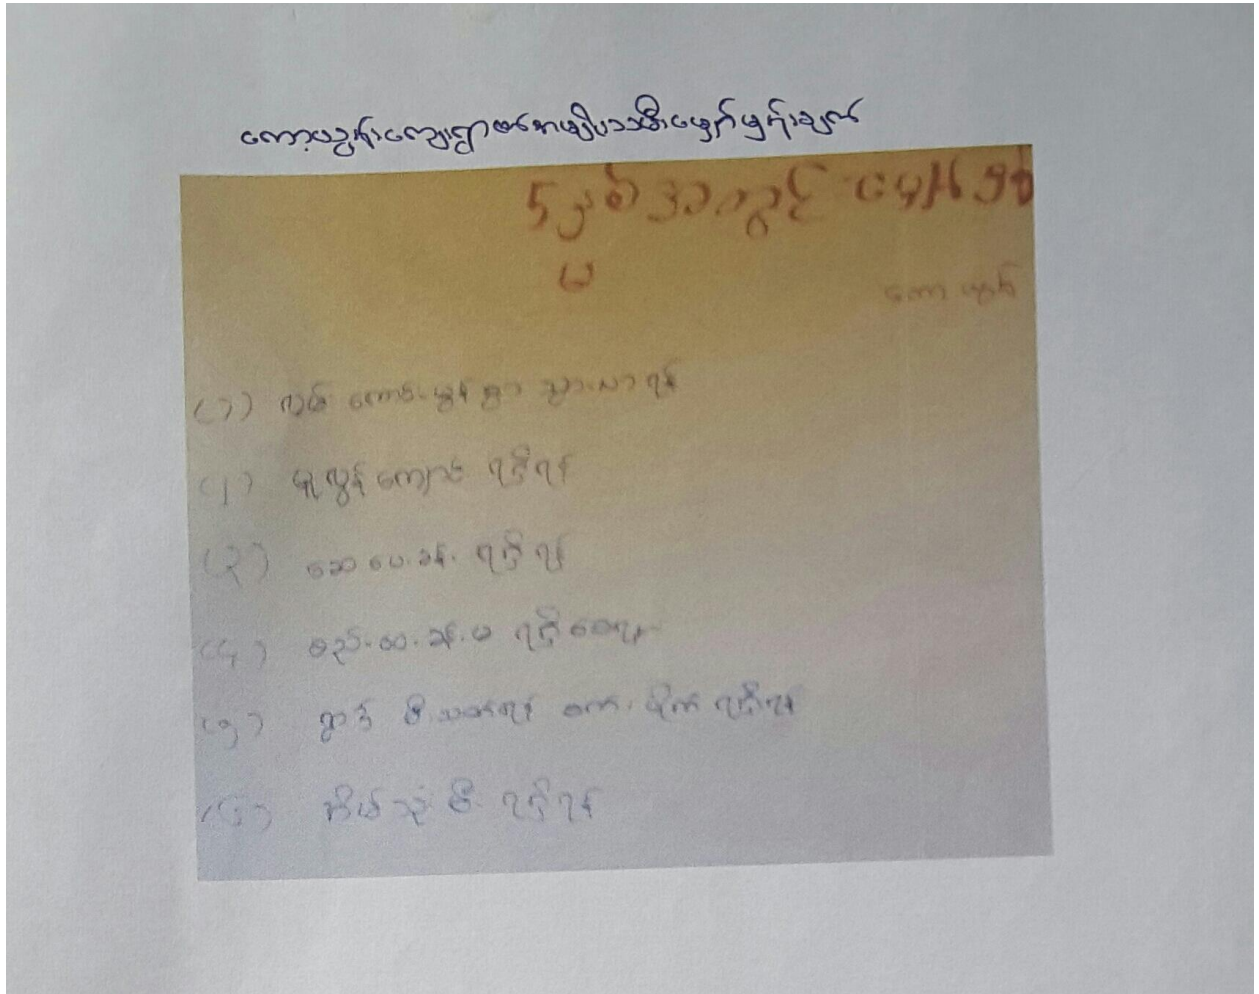 ကော့ယွန်းကျေးရွာ၏အမျိုးသမီးမျှော်မှန်းချက်
၅ နှစ်အတွင်း မျှော်မှန်း
ကော့ယွန်း
(၁) လမ်းကောင်းမွန်စွာ သွားလာရန်
(၂) မူလွန်ကျောင်း ရရှိရန်
(၃) ဆေးပေးခန်း ရရှိရန်
(၄) စည်းဝေးခန်းမ ရရှိစေရန်
(၅) ရွာတွင် မီးသတ်ရန် ပိုက် ရရှိရန်
(၆) အိမ်သုံး မီး ရရှိရန်